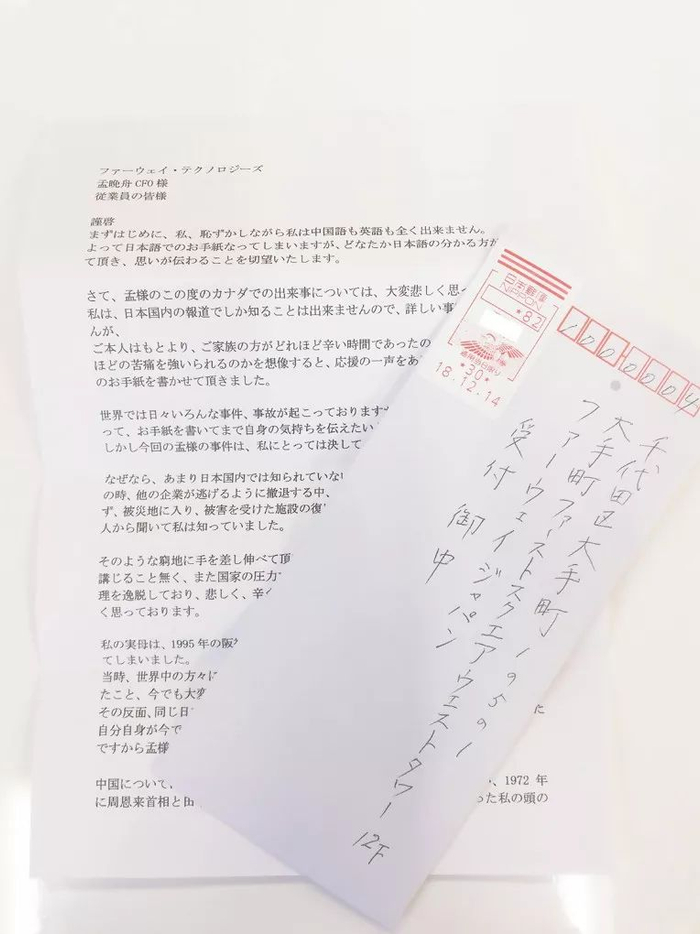 ファーウェイ・テクノロジーズ
孟晩舟 CFO 様
従業員の皆様
謹啓
まずはじめに、私、恥ずかしながら私は中国語も英語も全く出来ません。
よって日本語でのお手紙なってしまいますが、どなたか日本語の分かる方が
て頂き、思いが伝わることを切望いたします。
さて、孟様のこの度のカナダでの出来事については、大変悲しく思っ
私は、日本国内の報道でしか知ることは出来ませんので、詳しい事
んが、
ご本人はもとより、ご家族の方がどれほど辛い時間であったの
ほどの苦痛を強いられるのかを想像すると、応援の一声をあ
のお手紙を書かせて頂きました。
世界では日々いろんな事件、事故が起こっております
って、お手紙を書いてまで自身の気持ちを伝えたい
しかし今回の孟様の事件は、私にとっては決して
なぜなら、あまり日本国内では知られていない
の時、他の企業が逃げるように撤退する中、
ず、被災地に入り、被害を受けた施設の復
人から聞いて私は知っていました。
そのような窮地に手を差し伸べて頂
講じること無く、また国家の圧力
理を逸脱しており、悲しく、辛く
く思っております。
私の実母は、1995 年の阪
てしまいました。
当時、世界中の方々に
たこと、今でも大変
その反面、同じ日
自分自身が今で
ですから孟様
中国について、
、1972 年
に周恩来首相と田
った私の頭の
日本郵便
NIPPON
*82
*30*
18.12.14
1000004
千代田区大手町
大手町ファーストスクエアウエストタワー 12F
ファーウェイジャパン
受付 御中